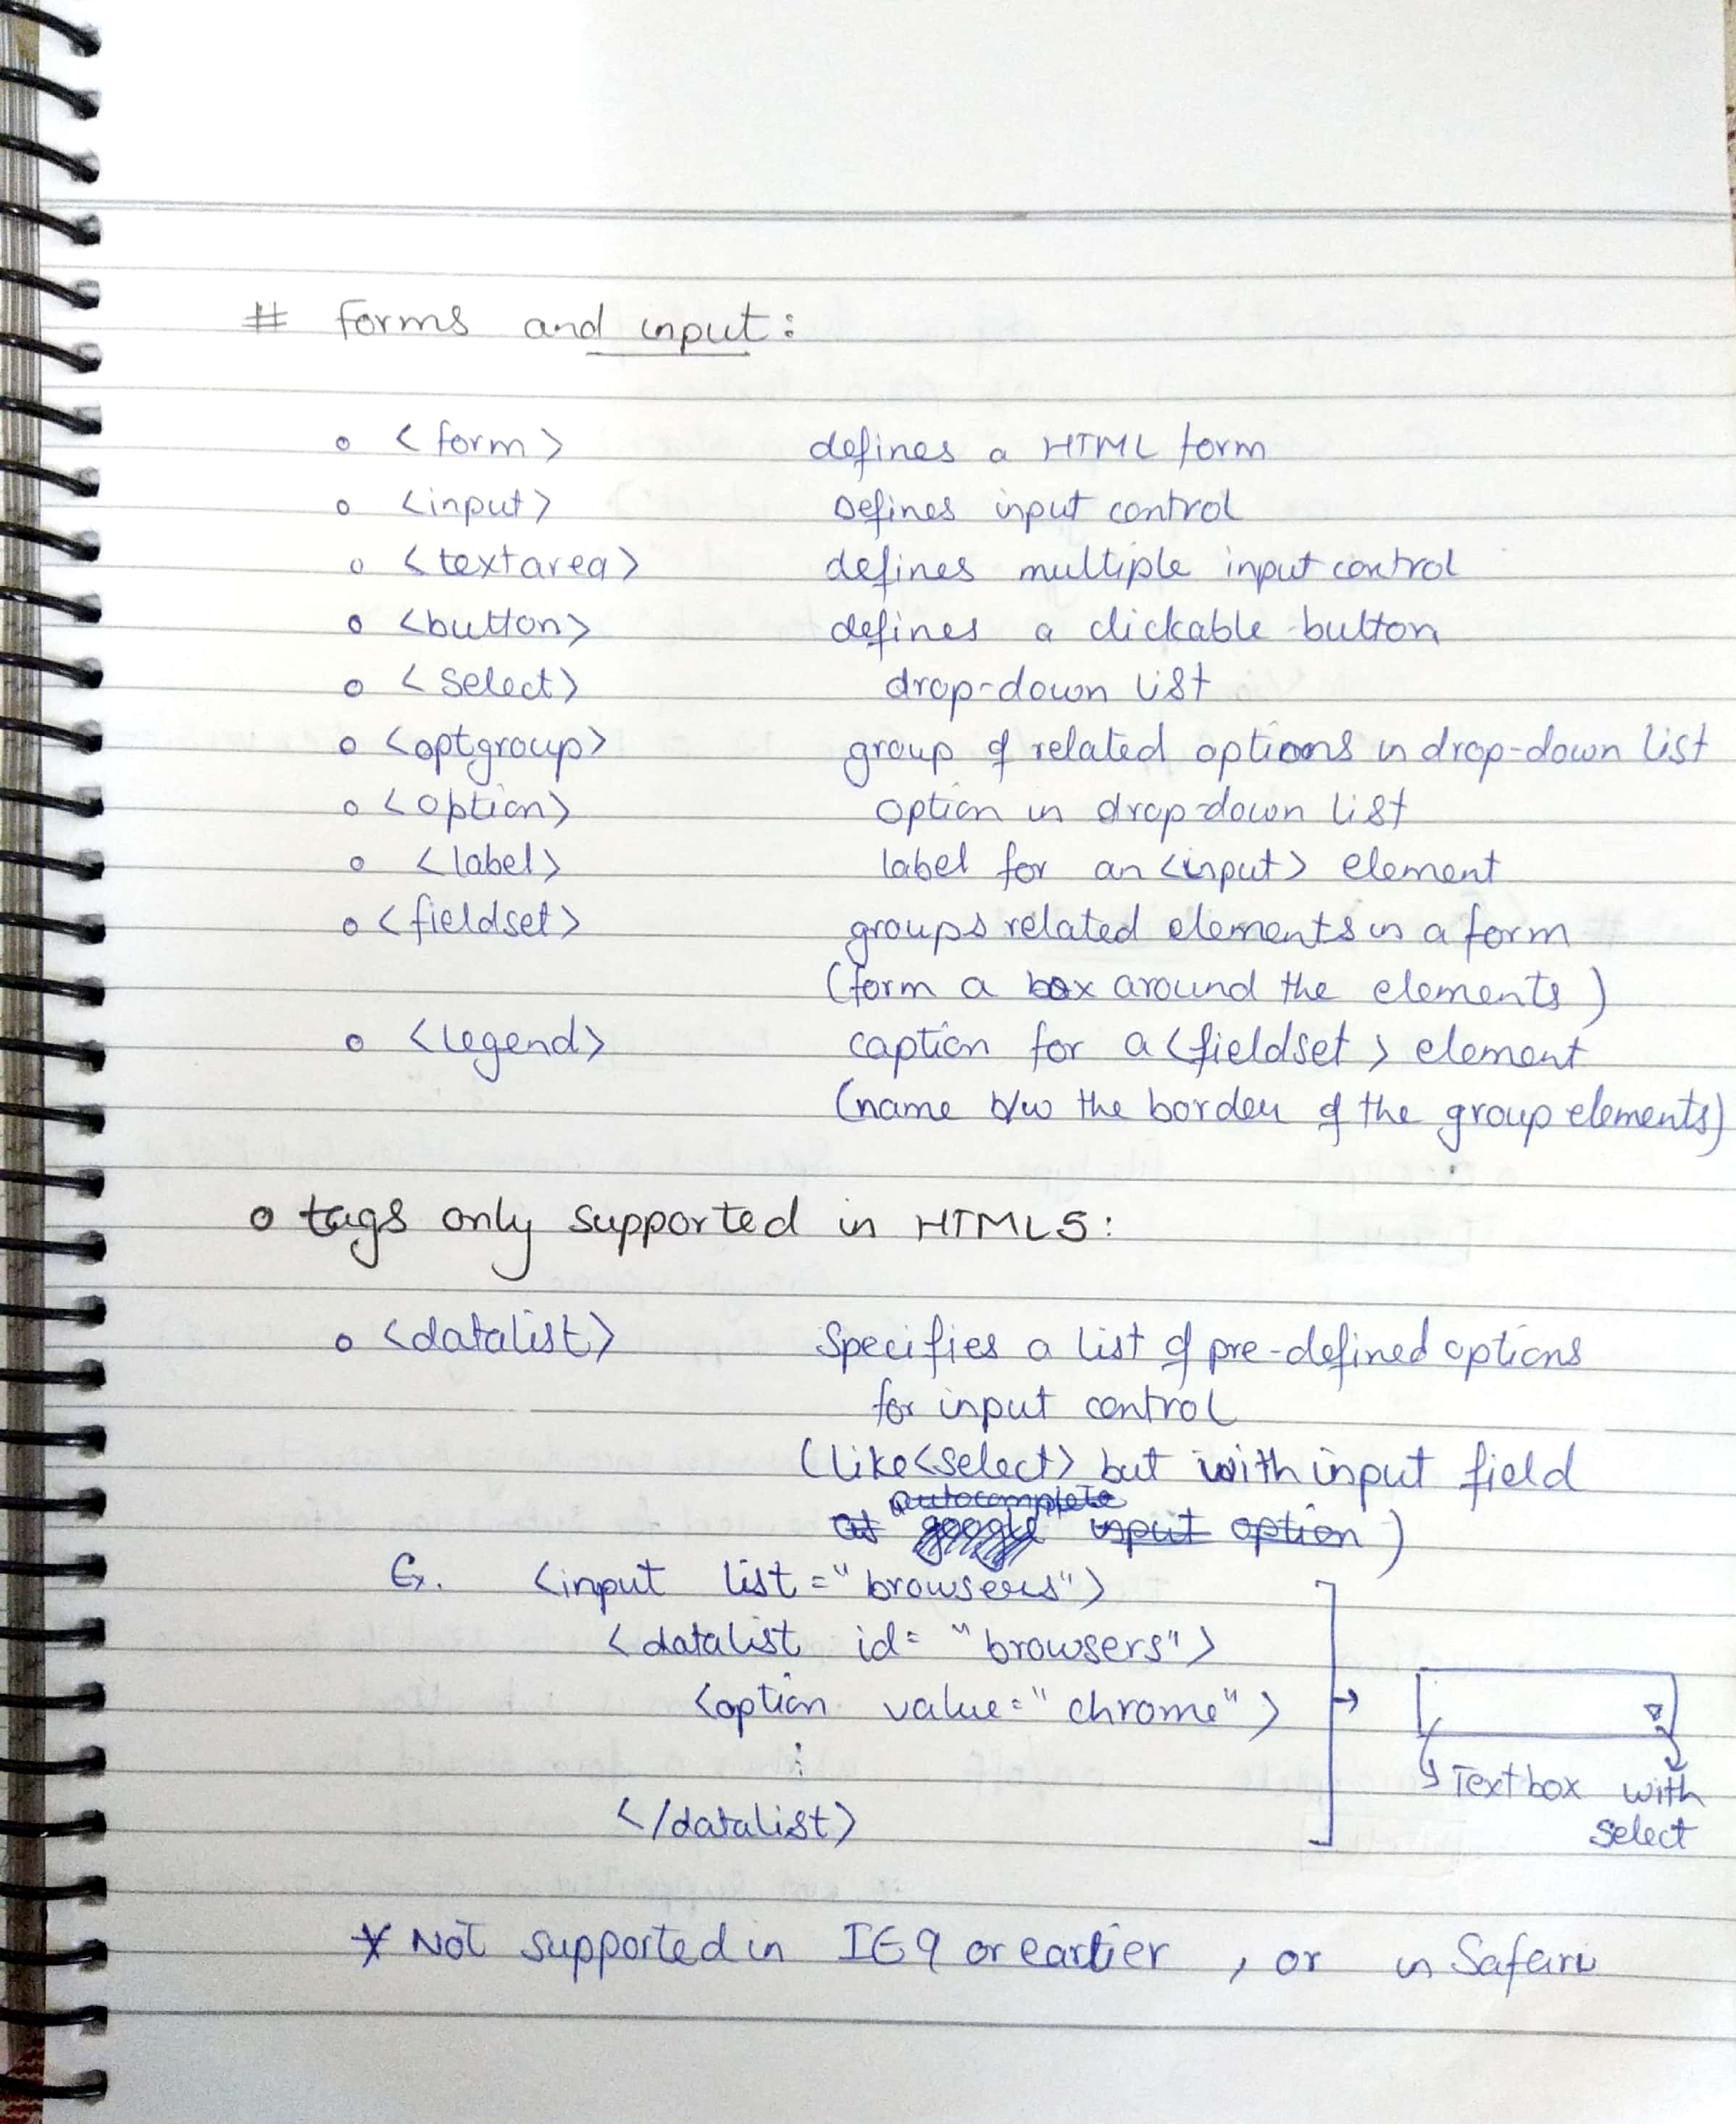 # forms and input:
o <form> defines a HTML form
o <input> Defines input control
o <textarea> defines multiple input control
o <button> defines a clickable button
o <select> drop-down list
o <optgroup> group of related options in drop-down list
o <option> option in drop-down list
o <label> label for an <input> element
o <fieldset> groups related elements in a form
(form a box around the elements)
o <legend> caption for a <fieldset> element
(name b/w the border of the group elements)
o tags only supported in HTML5:
o <datalist> Specifies a list of pre-defined options
for input control
(like <select> but with input field
autocomplete
google input option)
<input list="browsers">
<datalist id="browsers">
<option value="chrome">
:
</datalist>
Textbox with
select
* Not supported in IE9 or earlier, or in Safari